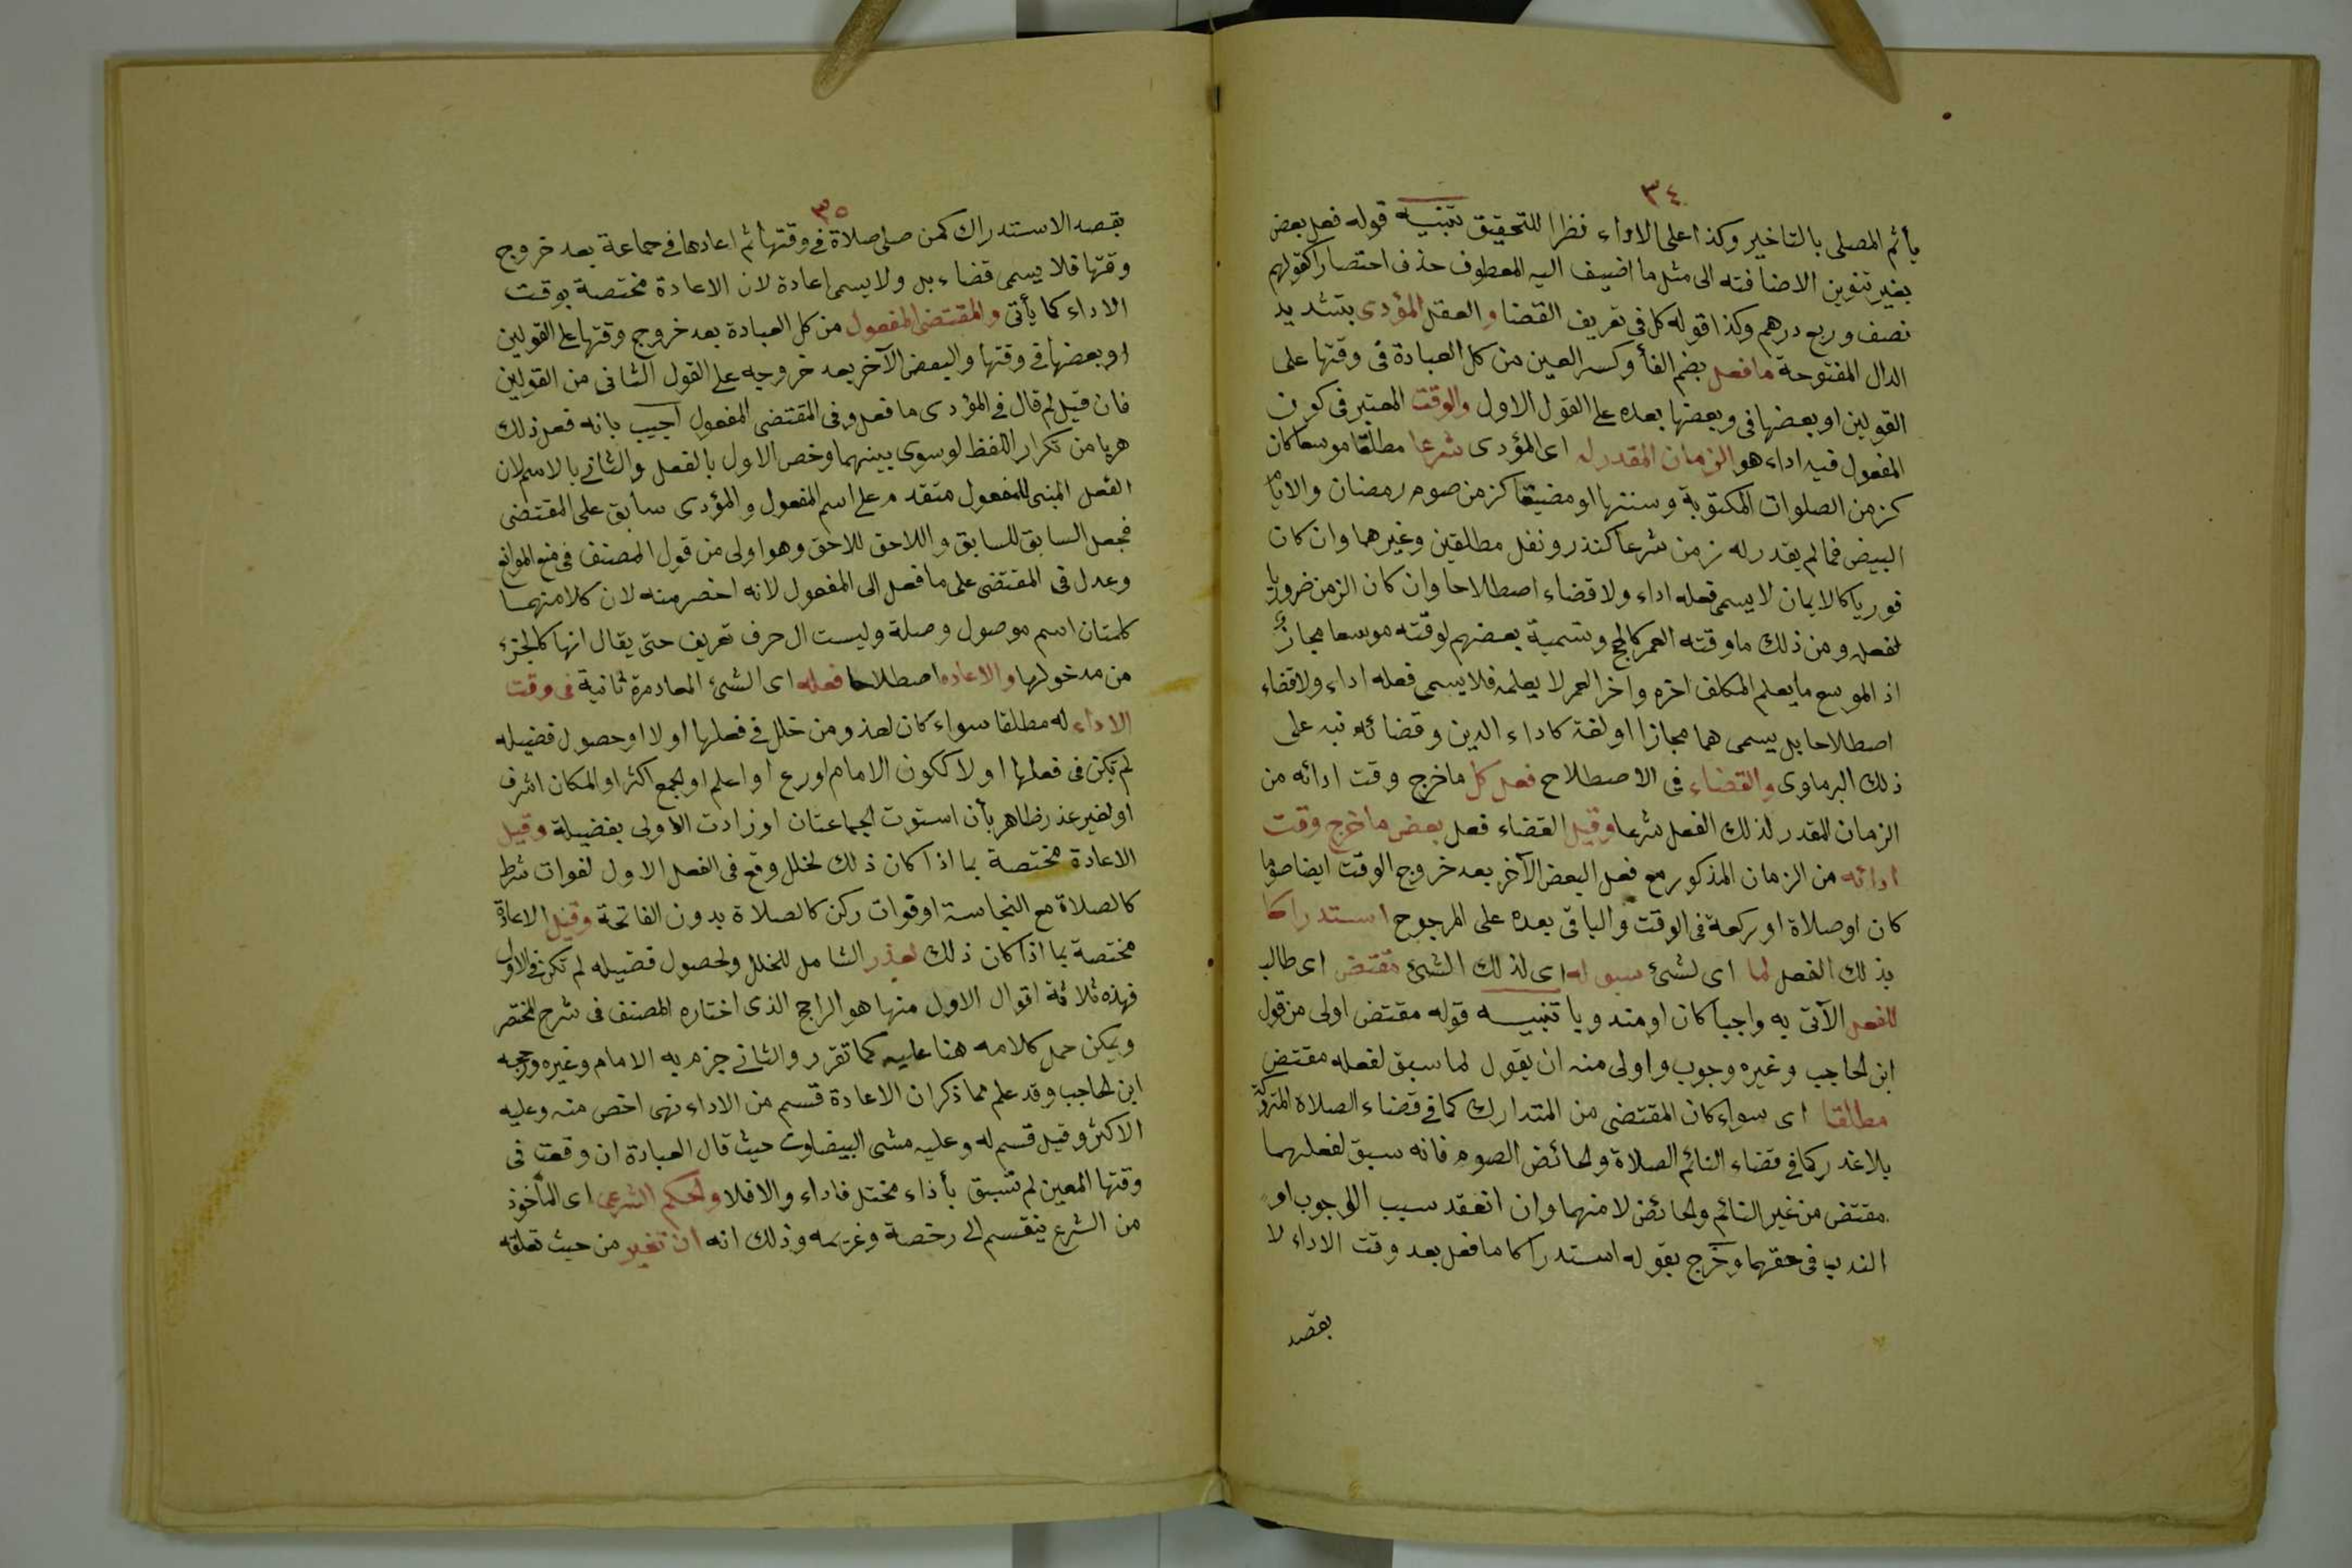 ٣٤
يأثم المصلى بالتاخير وكذا على الاداء نظرا للتحقيق تنبيه قوله فعل بعض
بغير تنوين الاضافته الى مثل ما اضيف اليه المعطوف حذف اختصارا كقولهم
نصف وربع درهم وكذا قوله كل فى تعريف القضا و العقل المؤدى بتشديد
الدال المفتوحة ما فعل بضم الفأ وكسر العين من كل العبادة فى وقتها على
القولين او بعضها فى وبعضها بعده على القول الاول والوقت المعتبر فى كون
المفعول فيه اداء هو الزمان المقدر له اى المؤدى شرعا مطلقا موسعا كان
كزمن الصلوات المكتوبة وسننها او مضيقا كزمن صوم رمضان والايام
البيض فما لم يقدر له زمن شرعا كنذر ونفل مطلقين وغيرهما وان كان
فوريا كالايمان لا يسمى فعله اداء ولا قضاء اصطلاحا وان كان الزمن ضروريا
لفعله ومن ذلك ما وقته العمر كالحج وتسمية بعضهم لوقته موسعا مجاز
اذ الموسع ما يعلم المكلف اخره واخر العمر لا يعلمه فلا يسمى فعله اداء ولا قضاء
اصطلاحا بل يسمى هما مجازا او لغة كاداء الدين وقضائه نبه على
ذلك البرماوى والقضاء فى الاصطلاح فعل كل ما خرج وقت ادائه من
الزمان المقدر لذلك الفعل شرعا وقيل القضاء فعل بعض ما خرج وقت
ادائه من الزمان المذكور مع فعل البعض الآخر بعد خروج الوقت ايضا صوما
كان او صلاة او ركعة فى الوقت والباقى بعده على المرجوح استدراكا
بذلك الفعل لما اى لشئ سبق له اى لذلك الشئ مقتض اى طالب
للفعل الآتى به واجبا كان او مندوبا تنبيه قوله مقتض اولى من قول
ابن الحاجب وغيره وجوب واولى منه ان يقول لما سبق لفعله مقتض
مطلقا اى سواء كان المقتضى من المتدارك كما فى قضاء الصلاة المتركة
بلا عذر كما فى قضاء النائم الصلاة والحائض الصوم فانه سبق لفعلهما
مقتض من غير النائم والحائض لا منهما وان انعقد سبب الوجوب او
الندب فى حقهما وخرج بقوله استدراكا ما فعل بعد وقت الاداء لا
بقصد
٣٥
بقصد الاستدراك كمن صلى صلاة فى وقتها ثم اعادها فى جماعة بعد خروج
وقتها فلا يسمى قضاء بل ولا يسمى اعادة لان الاعادة مختصة بوقت
الاداء كما يأتى والمقتضى المفعول من كل العبادة بعد خروج وقتها على القولين
او بعضها فى وقتها والبعض الآخر بعد خروجه على القول الثانى من القولين
فان قيل لم قال فى المؤدى ما فعل وفى المقتضى المفعول اجيب بانه فعل ذلك
هربا من تكرار اللفظ لو سوى بينهما وخص الاول بالفعل والثانى بالاسم لان
الفعل المبنى للمفعول متقدم على اسم المفعول والمؤدى سابق على المقتضى
فجعل السابق للسابق واللاحق للاحق وهو اولى من قول المصنف فى منع الموانع
وعدل فى المقتضى على ما فعل الى المفعول لانه اخصر منه لان كلا منهما
كلمتان اسم موصول وصلة وليست ال حرف تعريف حتى يقال انها كالجزئ
من مدخولها والاعاده اصطلاحا فعله اى الشئ المعاد مرة ثانية فى وقت
الاداء له مطلقا سواء كان لعذر من خلل فى فعلها اولا او حصول فضيله
لم تكن فى فعلها اولا ككون الامام اورع او اعلم او الجمع اكثر او المكان اشرف
او لغير عذر ظاهر بأن استوت الجماعتان او زادت الاولى بفضيلة وقيل
الاعادة مختصة بما اذا كان ذلك لخلل وقع فى الفعل الاول لفوات شرط
كالصلاة مع النجاسة او فوات ركن كالصلاة بدون الفاتحة وقيل الاعادة
مختصة بما اذا كان ذلك لعذر الشامل للخلل ولحصول فضيله لم تكن فى الاول
فهذه ثلاثة اقوال الاول منها هو الراجح الذى اختاره المصنف فى شرح المختصر
ويمكن حمل كلامه هنا عليه كما تقرر والثانى جزم به الامام وغيره ورجحه
ابن الحاجب وقد علم مما ذكر ان الاعادة قسم من الاداء فهى اخص منه وعليه
الاكثر وقيل قسم له وعليه مشى البيضاوى حيث قال العبادة ان وقعت فى
وقتها المعين لم تسبق بأداء مختل فاداء والا فلا والحكم الشرعى اى المأخوذ
من الشرع ينقسم الى رخصة وعزيمه وذلك انه ان تغير من حيث تعلقه